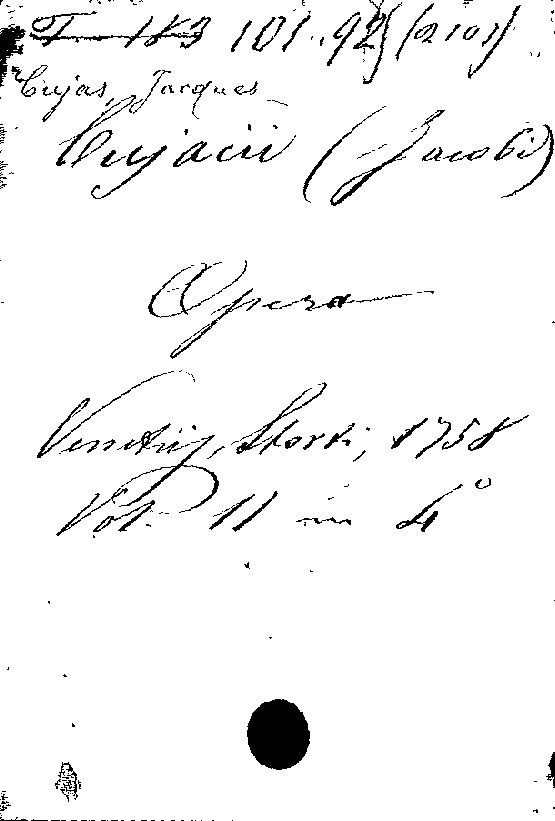 T 183 101.92 (2101)
Cujas, Jacques
Cujacii (Jacobi)
Opera
Venetiis, Storti, 1758
Vol. 11 in 4°